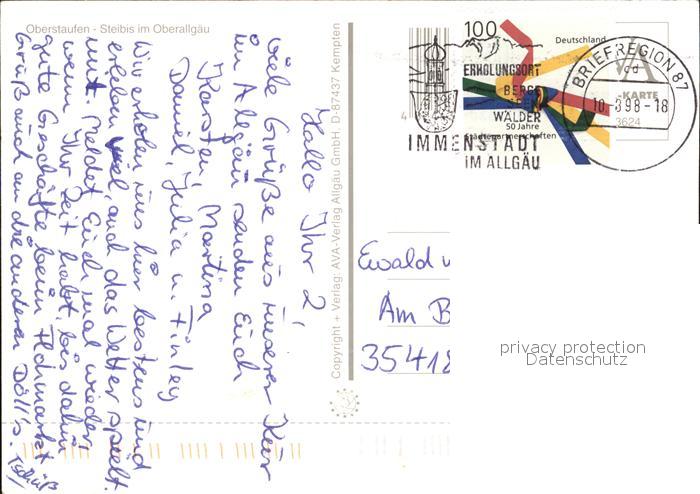 Oberstaufen - Steibis im Oberallgäu
Hallo Ihr 2,
viele Grüße aus unserer Kur
im Allgäu senden Euch
Karsten, Martina
Daniel, Julia u. Finley
Wir erholen uns hier bestens und
erleben viel, auch das Wetter spielt
mit. Meldet Euch mal wieder,
wenn Ihr Zeit habt, bis dahin
gute Geschäfte beim Flohmarkt
Grüße auch an die anderen Döll's. Tschüß
Copyright + Verlag: AVA-Verlag Allgäu GmbH. D-87437 Kempten
100
Deutschland
50 Jahre
Städtepartnerschaften
ERHOLUNGSORT
BERGE
SEEN
WÄLDER
IMMENSTADT
IM ALLGÄU
BRIEFREGION 87
cd
-KARTE
10.-3.98-18
3624
Ewald u
Am B
35418
privacy protection
Datenschutz